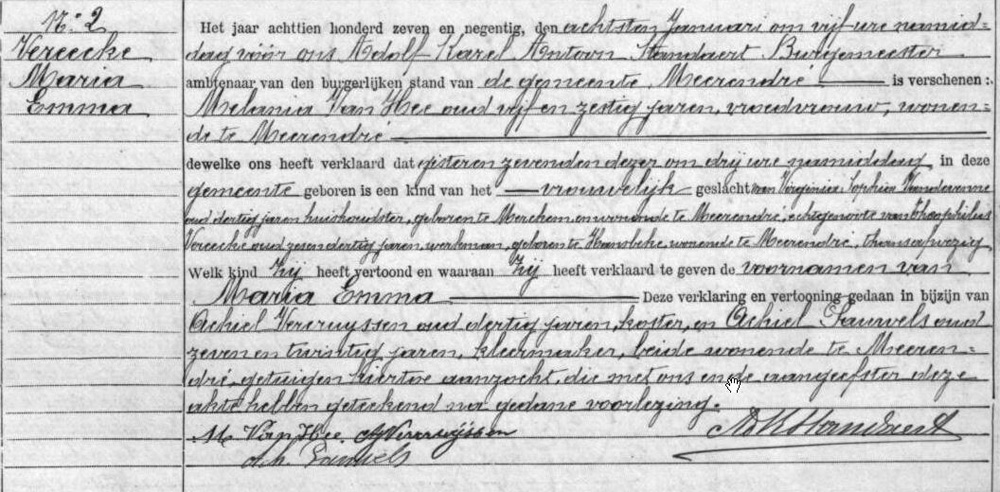 N:º 2
Vereecke
Maria
Emma
Het jaar achttien honderd zeven en negentig, den achtsten Januari om vijf ure namid=
dag vóór ons Adolf Karel Antoon Standaert Burgemeester
ambtenaar van den burgerlijken stand van de gemeente Meerendré is verschenen:
Melania Van Hee oud vijf en zestig jaren, vroedvrouw, wonen=
de te Meerendré
dewelke ons heeft verklaard dat gisteren zevenden dezer om drij ure namiddag in deze
gemeente geboren is een kind van het vrouwelijk geslacht van Virginia Sophia
oud dertig jaren huishoudster, geboren te Merckem, en wonende te Meerendré, echtgenoote van Theophilus
Vereecke oud zesendertig jaren, werkman, geboren te Hansbeke, wonende te Meerendré, thans afwezig
Welk kind zij heeft vertoond en waaraan zij heeft verklaard te geven de voornamen van
Maria Emma Deze verklaring en vertooning gedaan in bijzijn van
Achiel Vercruyssen oud dertig jaren, koster, en Achiel Pauwels oud
zeven en twintig jaren, kleermaker, beide wonende te Meeren=
dré, getuigen hiertoe aanzocht, die met ons en de aangeefster deze
akte hebben geteekend na gedane voorlezing.
M Van Hee. A Vercruyssen AdK Standaert
Ach. Pauwels